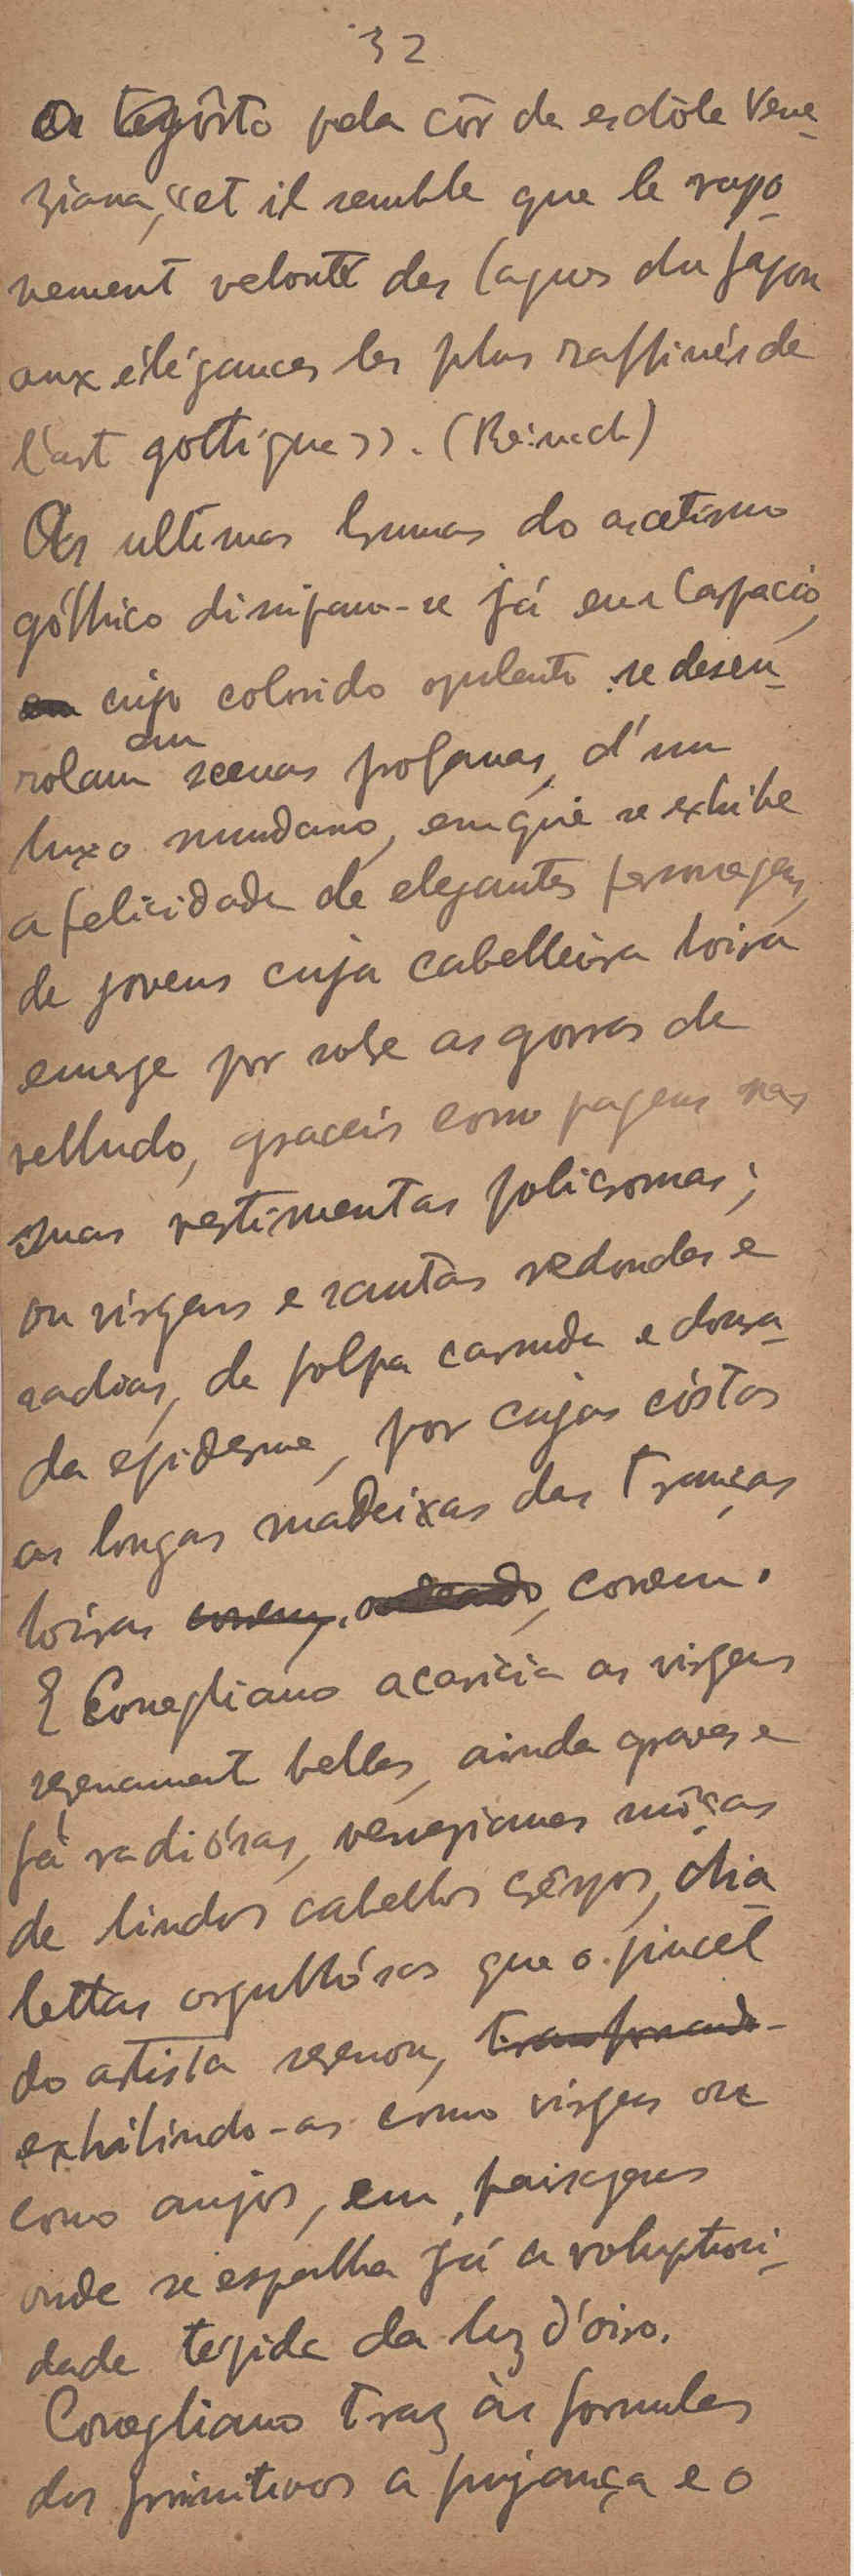 32
pela côr da escóla Vene-
ziana, «et il semble que le rayo-
nement velouté des lagunes du
aux élégances les plus raffinés de
l'art gothique». (Reinach)
As ultimas brumas do ascetismo
góthico dissipam-se já em Carpacio,
cujo colorido opulento se desen-
rolam em scenas profanas, d'um
luxo mundano, em que se exhibe
a felicidade de elegantes personagens,
de jovens cuja cabelleira loira
emerge por sobre as gorras de
velludo, graceis como pagens nas
suas vestimentas policromas;
ou virgens e santas redondas e
sadias, de polpa carnuda e doura-
da epiderme, por cujas cóstas
as longas madeixas das tranças
loiras correm, ondeando, correm.
E Conegliano acaricia as virgens
serenamente bellas, ainda graves e
já radiósas, venezianas môças
de lindos cabellos crêspos,
orgulhósas que o pincel
do artista serenou, transformando-
exhibindo-as como virgens ou
como anjos, em paisagens
onde se espalha já a voluptuosi-
dade tepida da luz d'oiro.
Conegliano traz às formulas
dos primitivos a pujança e o